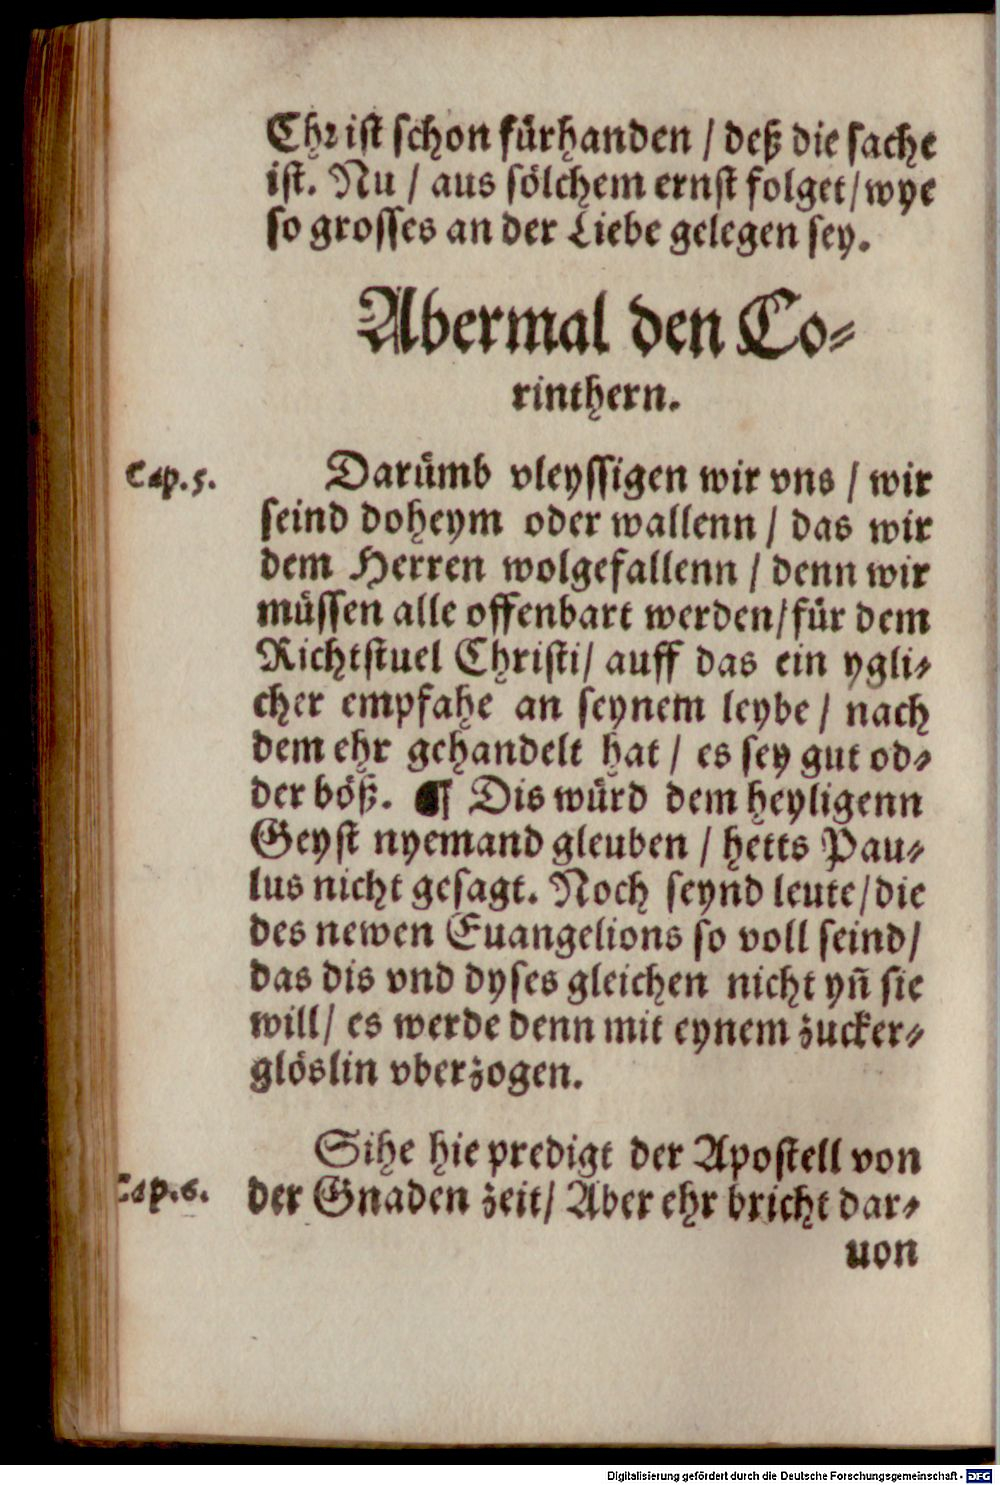 Chꝛist schon fürhanden / deß die sache
ist. Nu / aus sölchem ernst folget / wye
so grosses an der Liebe gelegen sey.
Abermal den Co⸗
rinthern.
Cap. 5.
Darümb vleyssigen wir vns / wir
seind doheym oder wallenn / das wir
dem Herren wolgefallenn / denn wir
müssen alle offenbart werden / für dem
Richtstuel Christi / auff das ein ygli⸗
cher empfahe an seynem leybe / nach
dem ehr gehandelt hat / es sey gut od⸗
der böß. ¶ Dis würd dem heyligenn
Geyst nyemand gleuben / hetts Pau⸗
lus nicht gesagt. Noch seynd leute / die
des newen Euangelions so voll seind /
das dis vnd dyses gleichen nicht yn̄ sie
will / es werde denn mit eynem zucker⸗
glöslin vberzogen.
Sihe hie predigt der Apostell von
Cap. 6.
der Gnaden zeit / Aber ehr bricht dar⸗
uon
Digitalisierung gefördert durch die Deutsche Forschungsgemeinschaft - DFG